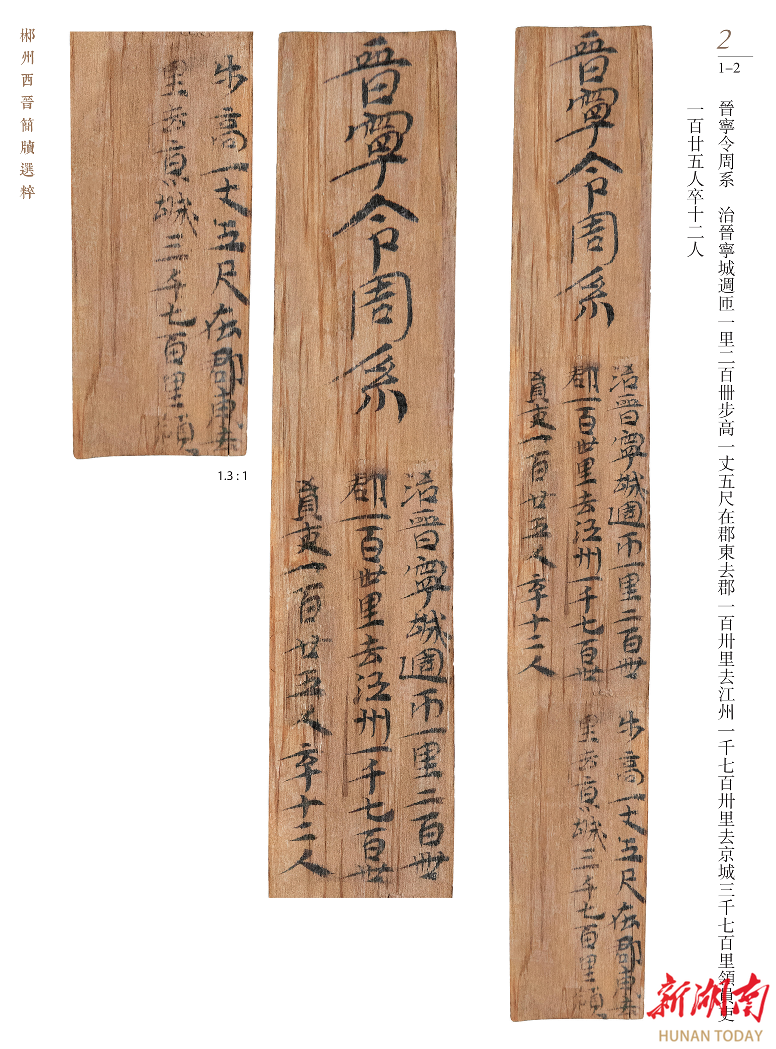 2
1–2
晉寧令周系　治晉寧城週匝一里二百卌步高一丈五尺在郡東去郡一百卅里去江州一千七百卅里去京城三千七百里領員吏
一百廿五人卒十二人
晉寧令周系
治晉寧城週帀一里二百卌
步高一丈五尺在郡東去
郡一百卅里去江州一千七百卅
里去京城三千七百里領
員吏一百廿五人卒十二人
晉寧令周系
治晉寧城週帀一里二百卌
郡一百卅里去江州一千七百卅
員吏一百廿五人卒十二人
步高一丈五尺在郡東去
里去京城三千七百里領
1.3 : 1
郴州西晉簡牘選粹
新湖南
HUNAN TODAY